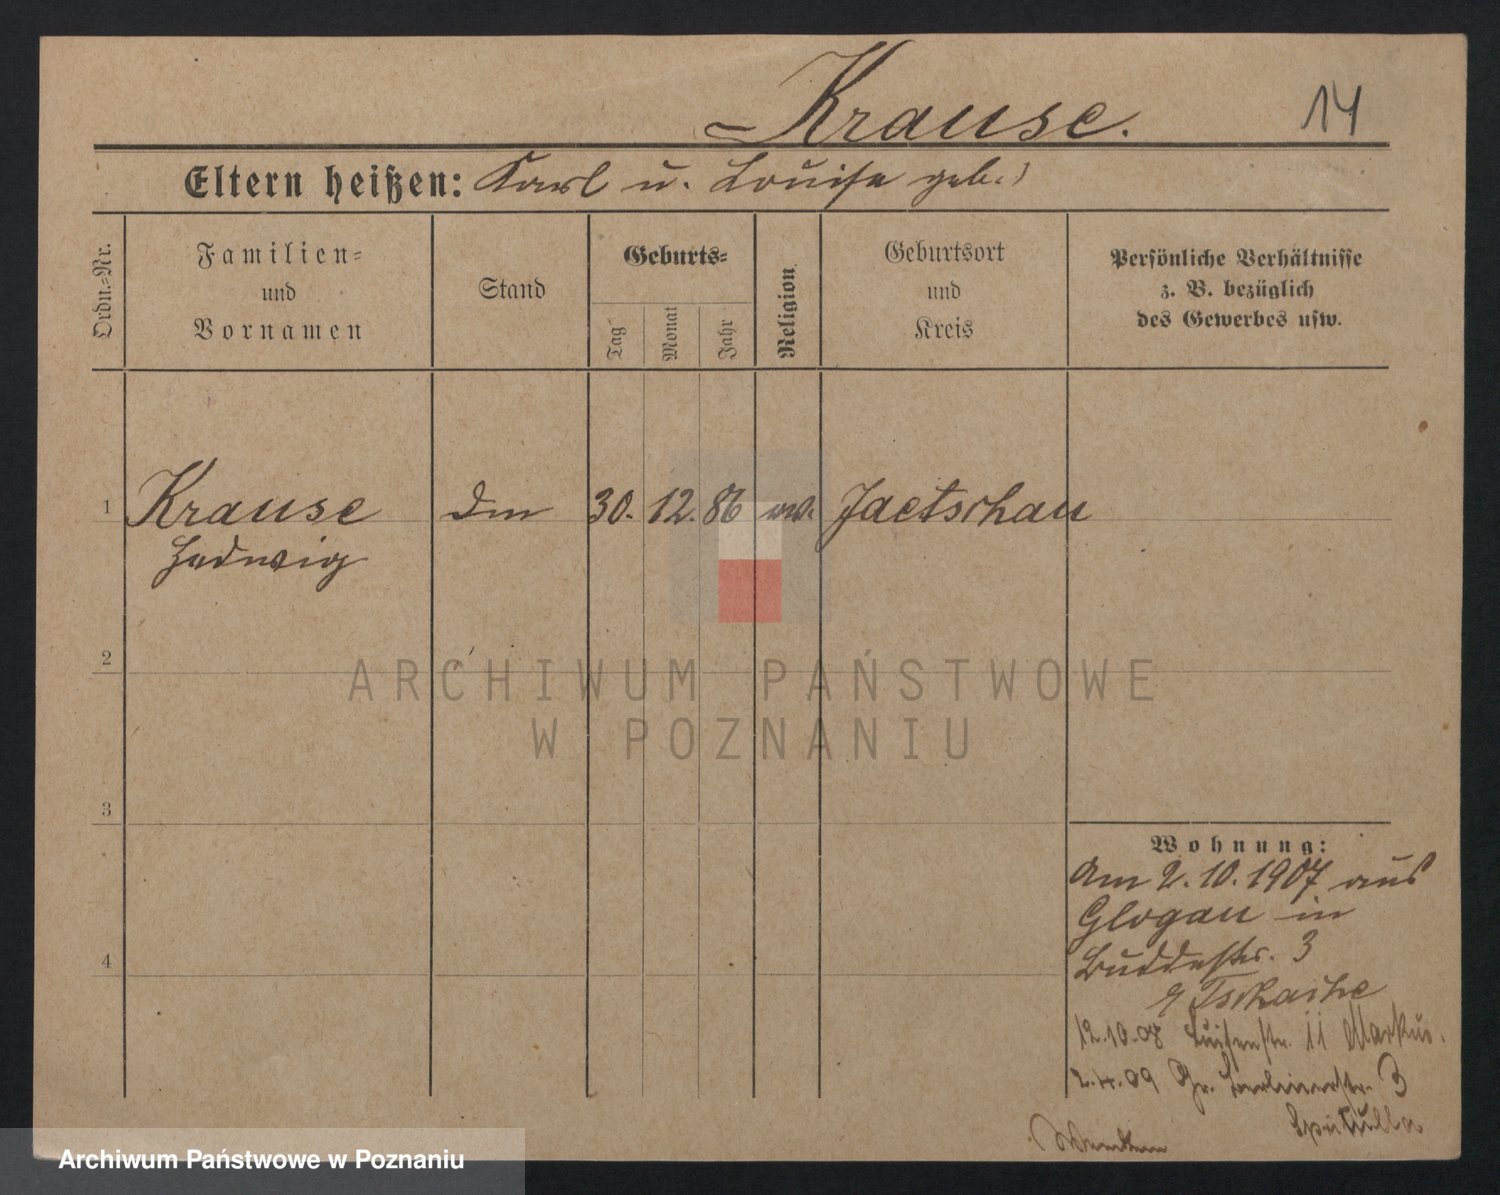 Krause.
14
Eltern heißen: Karl u. Louise geb.)
Ordn.-Nr.
Familien-
und
Vornamen
Stand
Geburts-
Tag
Monat
Jahr
Religion
Geburtsort
und
Kreis
Persönliche Verhältnisse
z. B. bezüglich
des Gewerbes usw.
1
Krause
Hedwig
Dm
30. 12. 86
ev.
Jaetschau
2
3
4
ARCHIWUM PAŃSTWOWE
W POZNANIU
Wohnung:
Am 2.10.1907 aus
Glogau in
Buddestr. 3
Tschaihe
12.10.08 Luisenstr. 11 Markus.
2.4.09 Gr. Berlinerstr. 3
Archiwum Państwowe w Poznaniu